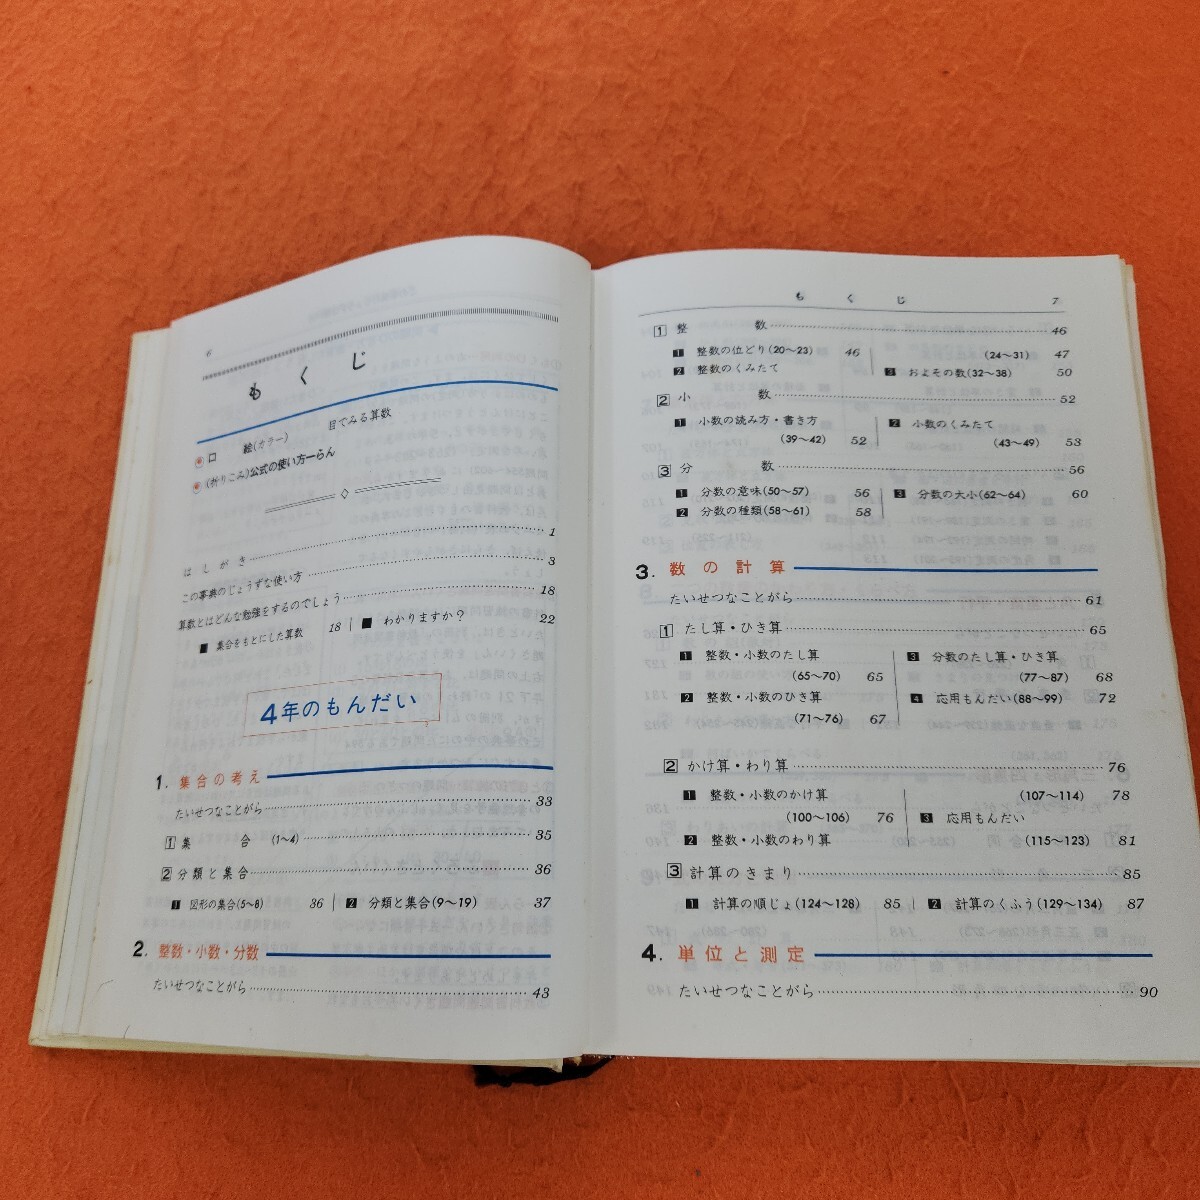 6
もくじ
口絵(カラー) 目でみる算数
(折りこみ)公式の使い方一らん
はしがき 1
この事典のじょうずな使い方 3
算数とはどんな勉強をするのでしょう 18
■ 集合をもとにした算数 18 ■ わかりますか? 22
4年のもんだい
1. 集合の考え
たいせつなことがら 33
1 集合 (1~4) 35
2 分類と集合 36
1 図形の集合(5~8) 36 2 分類と集合(9~19) 37
2. 整数・小数・分数
たいせつなことがら 43
もくじ 7
1 整数 46
1 整数の位どり(20~23) 46
2 整数のくみたて
(24~31) 47
3 およその数(32~38) 50
2 小数 52
1 小数の読み方・書き方
(39~42) 52
2 小数のくみたて
(43~49) 53
3 分数 56
1 分数の意味(50~57) 56
2 分数の種類(58~61) 58
3 分数の大小(62~64) 60
3. 数の計算
たいせつなことがら 61
1 たし算・ひき算 65
1 整数・小数のたし算
(65~70) 65
2 整数・小数のひき算
(71~76) 67
3 分数のたし算・ひき算
(77~87) 68
4 応用もんだい(88~99) 72
2 かけ算・わり算 76
1 整数・小数のかけ算
(100~106) 76
2 整数・小数のわり算
(107~114) 78
3 応用もんだい
(115~123) 81
3 計算のきまり 85
1 計算の順じょ(124~128) 85 2 計算のくふう(129~134) 87
4. 単位と測定
たいせつなことがら 90